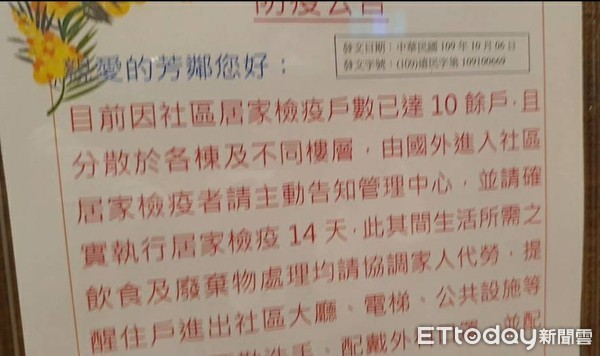 防疫公告
發文日期：中華民國 109 年 10 月 06 日
發文字號：(109)遠民字第 109100669
親愛的芳鄰您好：
目前因社區居家檢疫戶數已達 10 餘戶，且
分散於各棟及不同樓層，由國外進入社區
居家檢疫者請主動告知管理中心，並請確
實執行居家檢疫 14 天，此其間生活所需之
飲食及廢棄物處理均請協調家人代勞，提
醒住戶進出社區大廳、電梯、公共設施等
洗手、配戴外
並配
ETtoday新聞雲